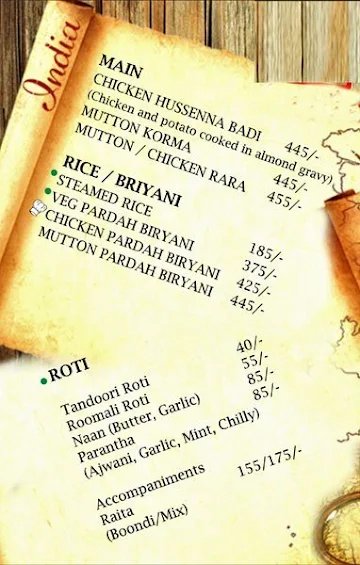 India
MAIN
CHICKEN HUSSENNA BADI 445/-
(Chicken and potato cooked in almond gravy)
MUTTON KORMA 445/-
MUTTON / CHICKEN RARA 455/-
RICE / BRIYANI
STEAMED RICE 185/-
VEG PARDAH BIRYANI 375/-
CHICKEN PARDAH BIRYANI 425/-
MUTTON PARDAH BIRYANI 445/-
ROTI
Tandoori Roti 40/-
Roomali Roti 55/-
Naan (Butter, Garlic) 85/-
Parantha 85/-
(Ajwani, Garlic, Mint, Chilly)
Accompaniments
Raita 155/175/-
(Boondi/Mix)